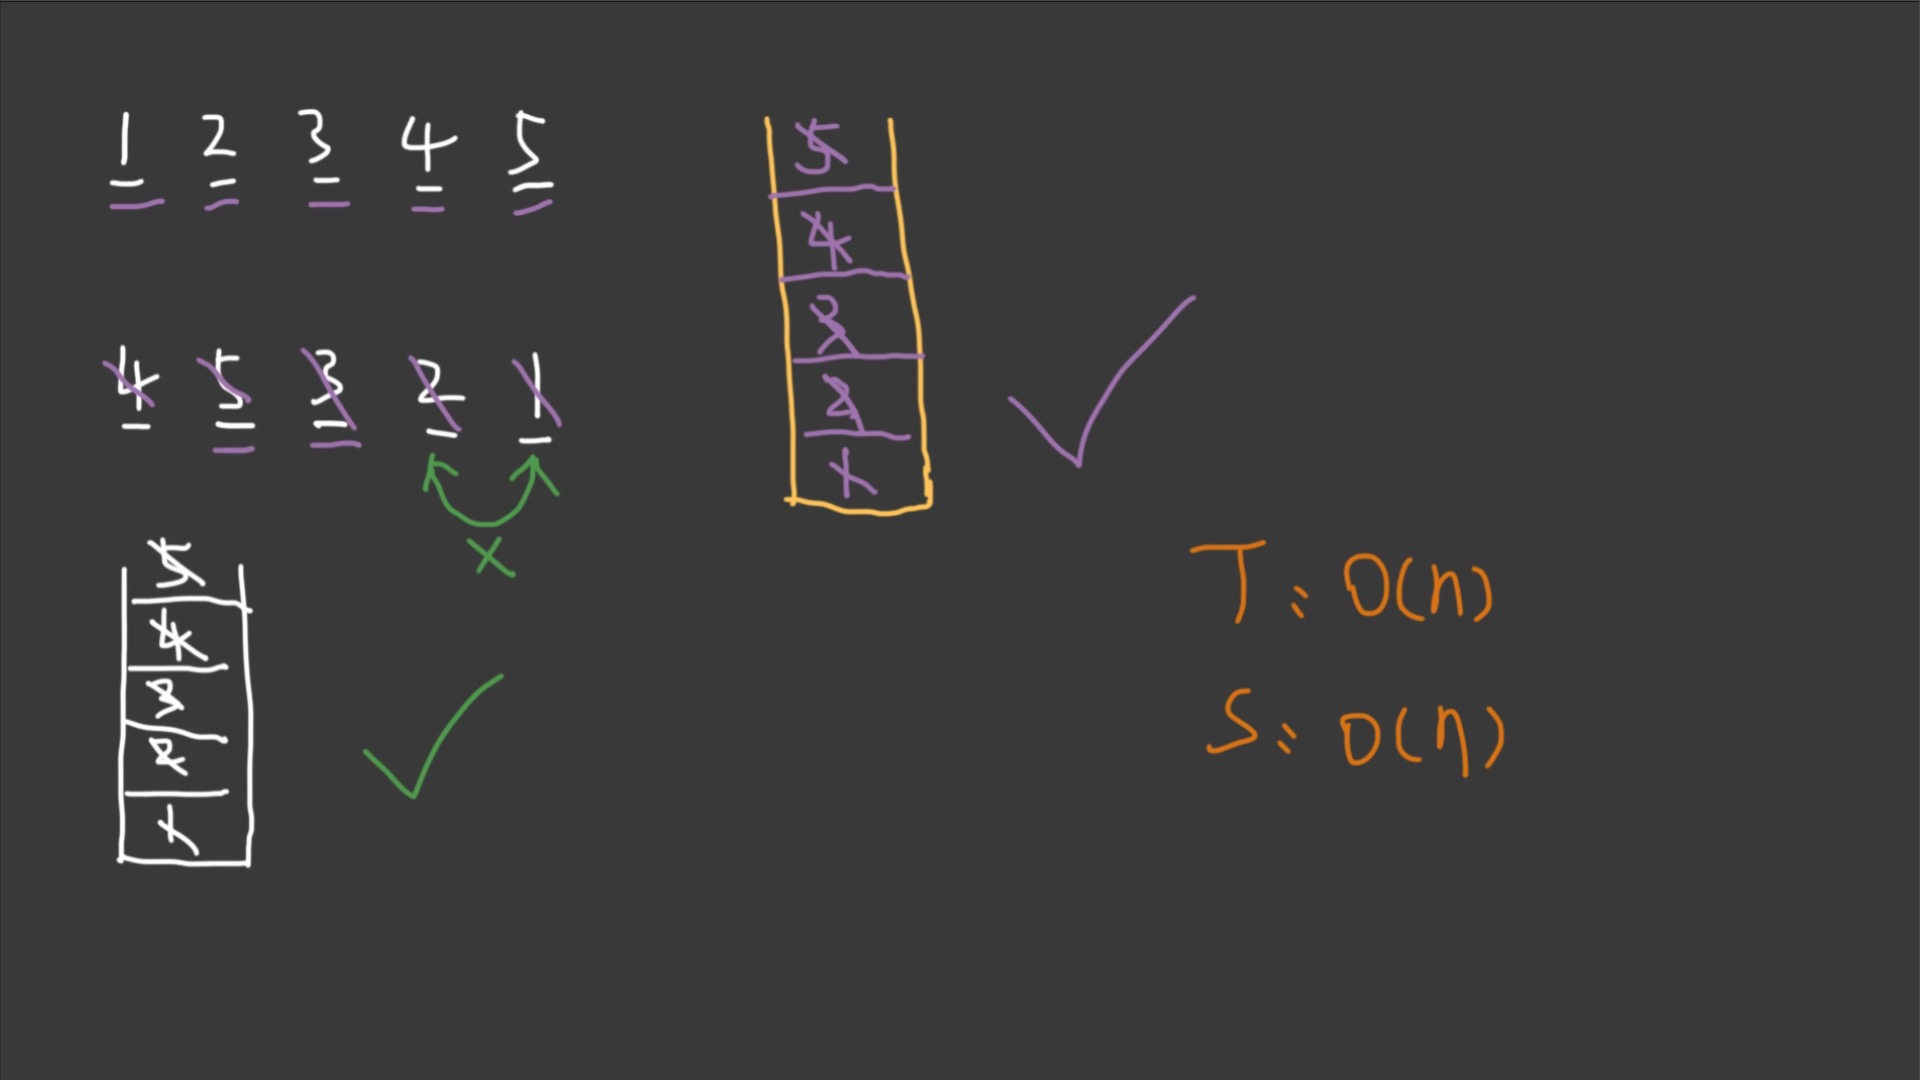 1 2 3 4 5
4 5 3 2 1
5
4
3
2
1
5
4
3
2
1
T: O(n)
S: O(n)